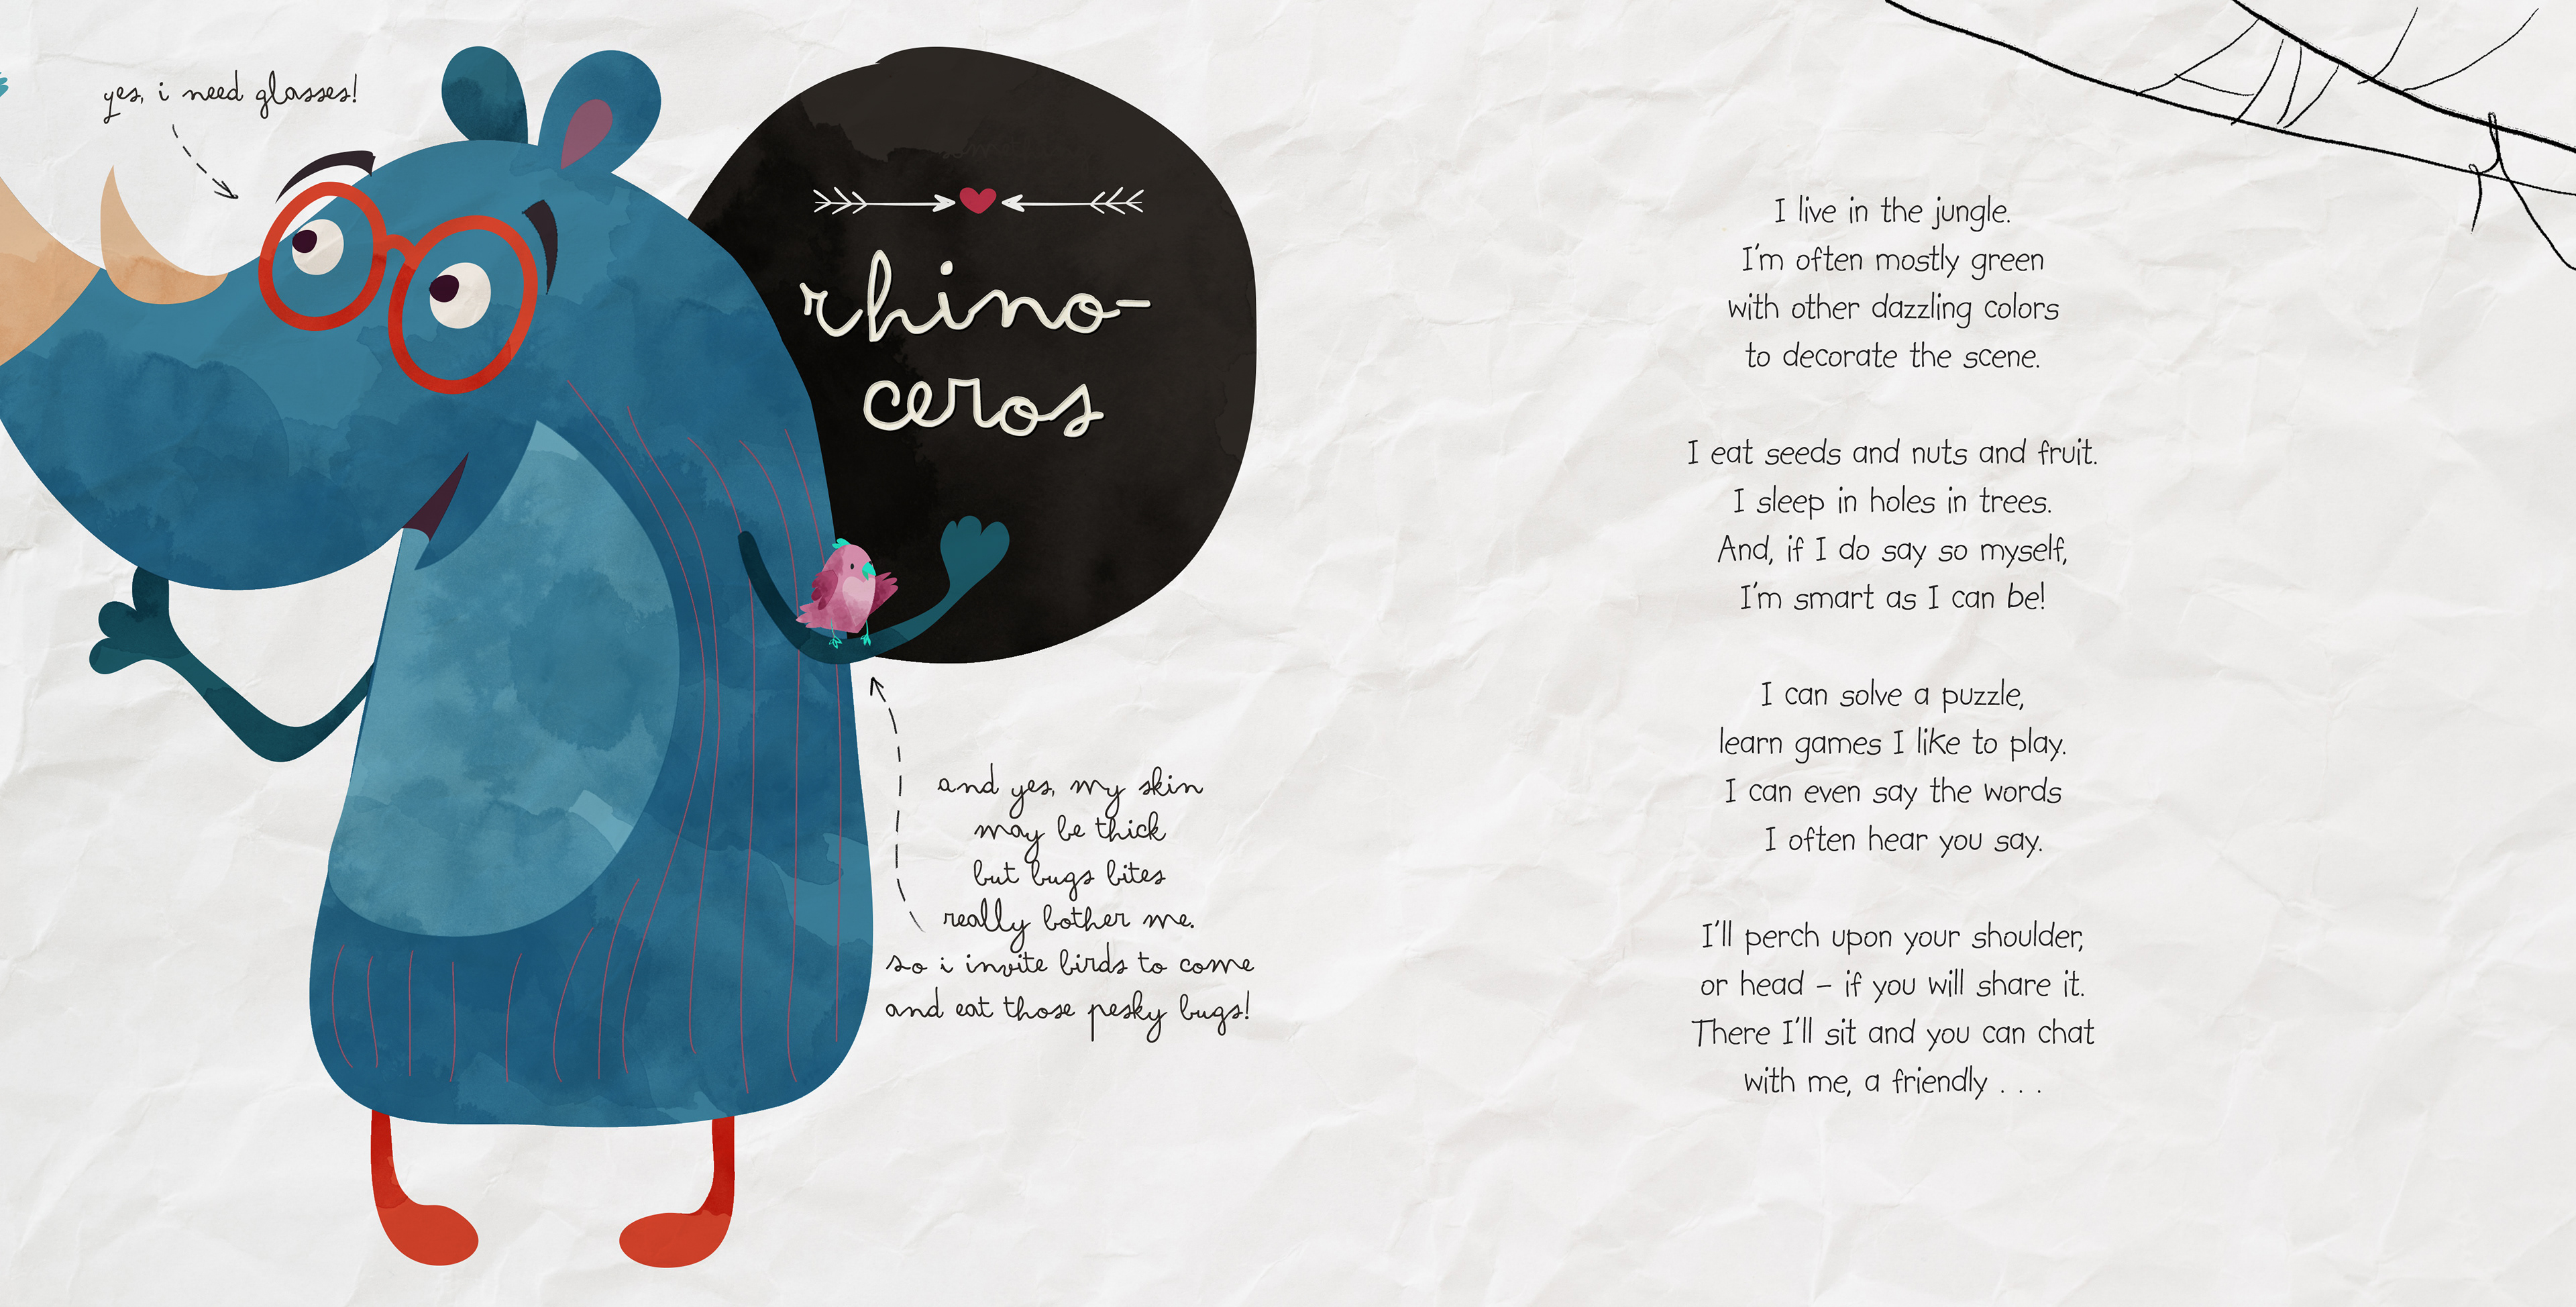 yes, i need glasses!
rhino-
ceros
and yes, my skin
may be thick
but bugs bites
really bother me.
so i invite birds to come
and eat those pesky bugs!
I live in the jungle.
I'm often mostly green
with other dazzling colors
to decorate the scene.
I eat seeds and nuts and fruit.
I sleep in holes in trees.
And, if I do say so myself,
I'm smart as I can be!
I can solve a puzzle,
learn games I like to play.
I can even say the words
I often hear you say.
I'll perch upon your shoulder,
or head – if you will share it.
There I'll sit and you can chat
with me, a friendly . . .